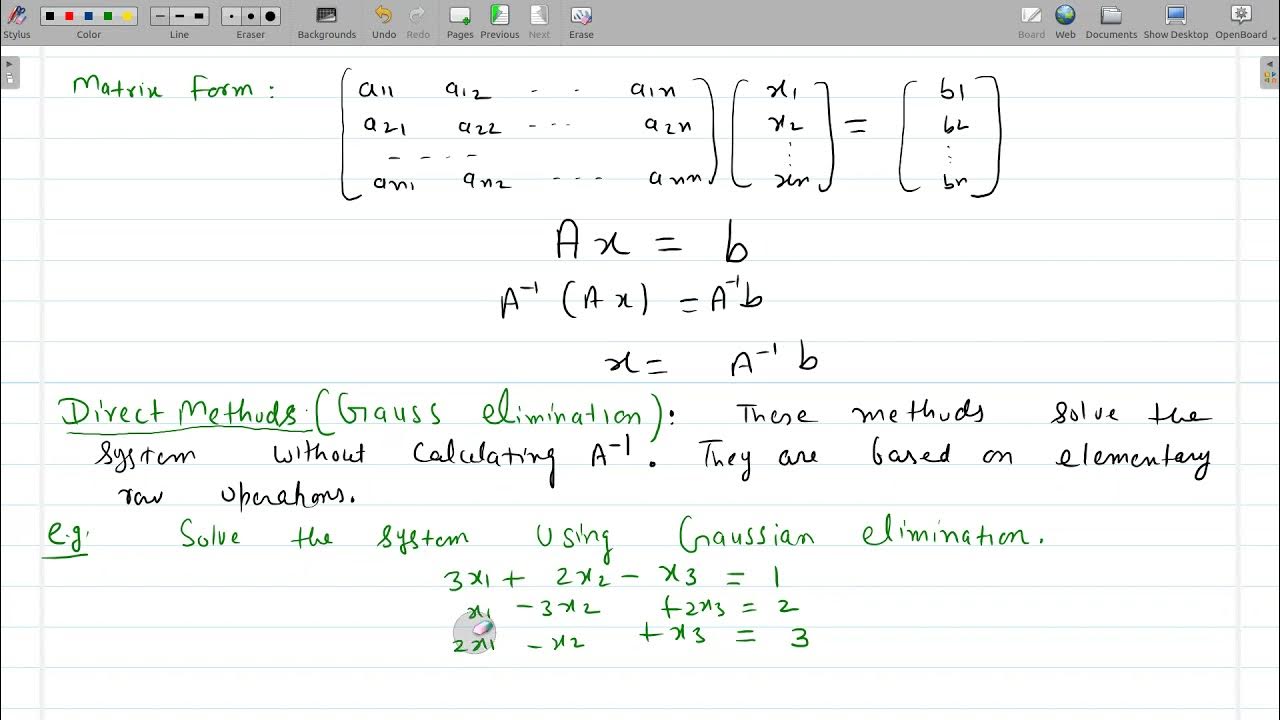 Stylus Color Line Eraser Backgrounds Undo Redo Pages Previous Next Erase Board Web Documents Show Desktop OpenBoard
Matrix Form:
a11 a12 - - a1n x1 b1
a21 a22 - - - a2n x2 = b2
- - - - ⋮ ⋮
an1 an2 - - - ann xn bn
Ax = b
A⁻¹ (Ax) = A⁻¹b
x = A⁻¹ b
Direct Methods (Gauss elimination): These methods solve the
system without calculating A⁻¹. They are based on elementary
row operations.
e.g: Solve the system using Gaussian elimination.
3x1 + 2x2 - x3 = 1
x1 - 3x2 + 2x3 = 2
2x1 - x2 + x3 = 3